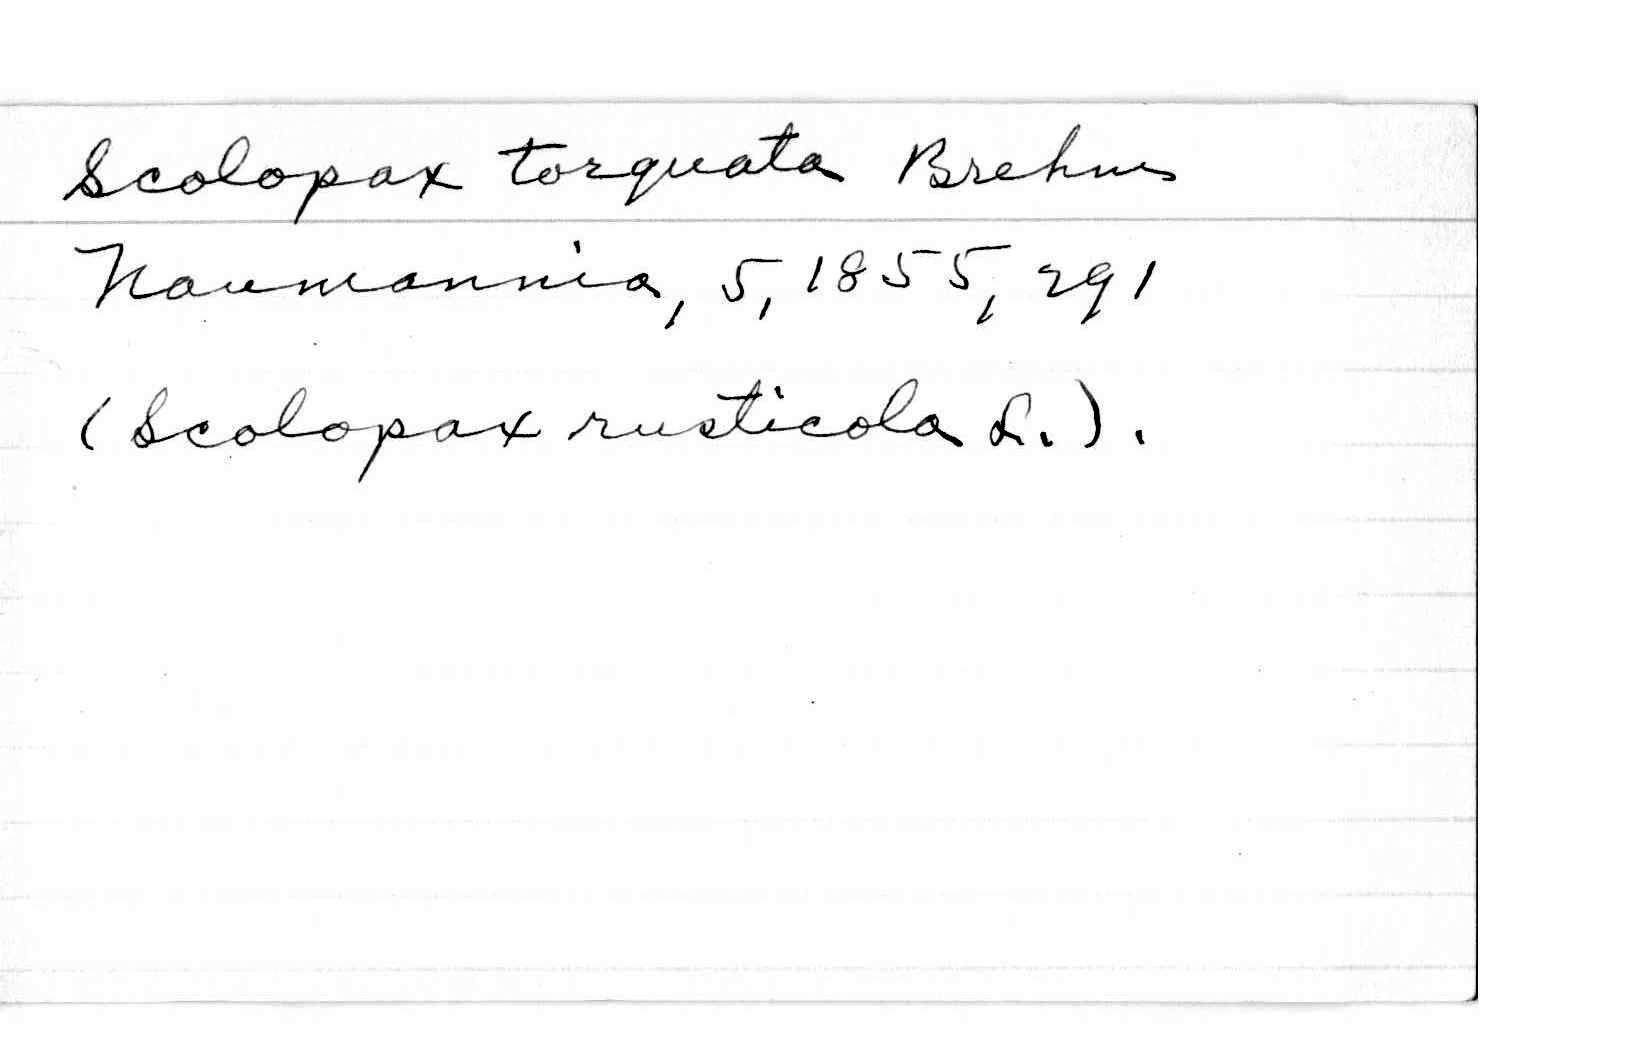 Scolopax torquata Brehm
Naumannia, 5, 1855, 291
(Scolopax rusticola L.).